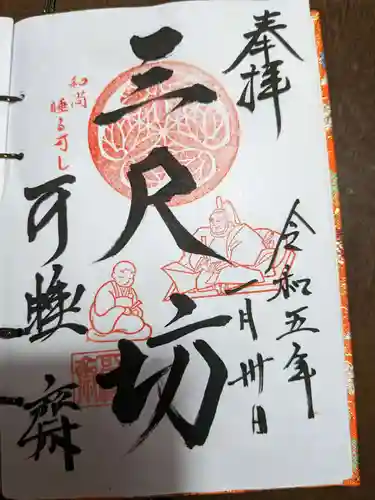 奉拝
令和五年
一月卅日
三尺坊
和尚
睡る可し
可睡斎